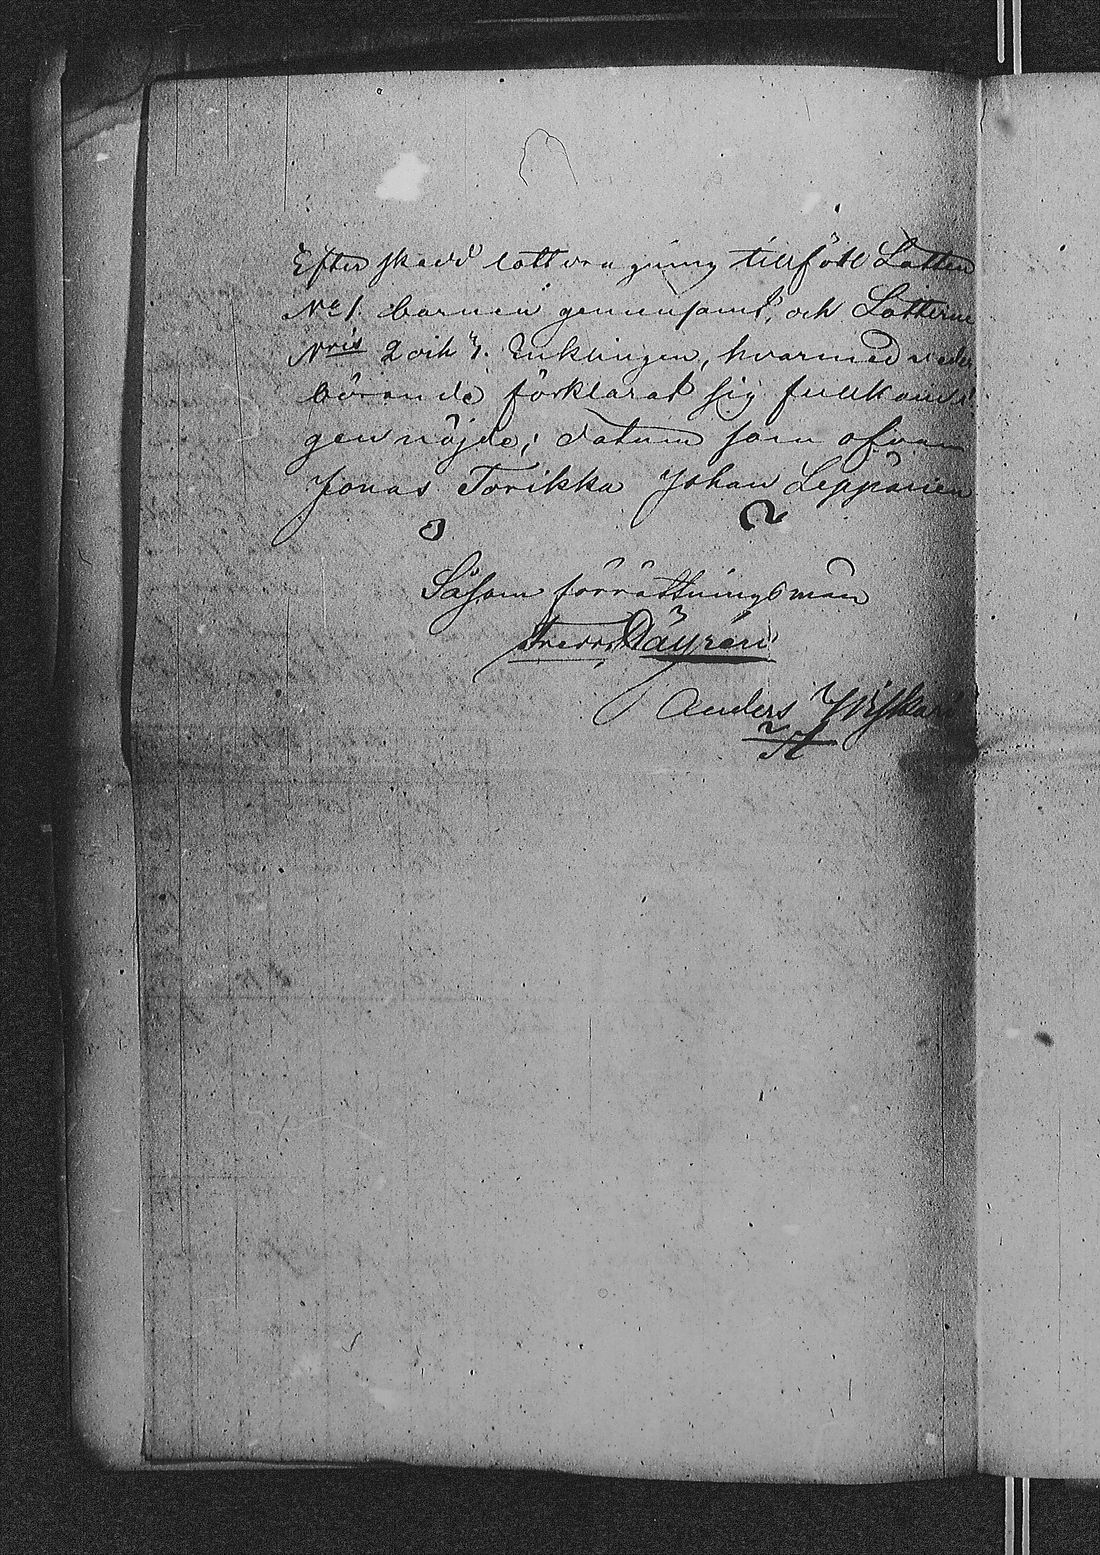 Efter skedd lottdragning tillföll Lotten
No 1. barnen gemensamt, och Lotterne
Nris 2 och 3. Enklingen, hvarmed veder
börande förklarat sig fullkomli
gen nöjde; datum som ofvan
Jonas Torikka Johan Leppänen
Såsom förrättningsmän
Fredr Däyren
Anders